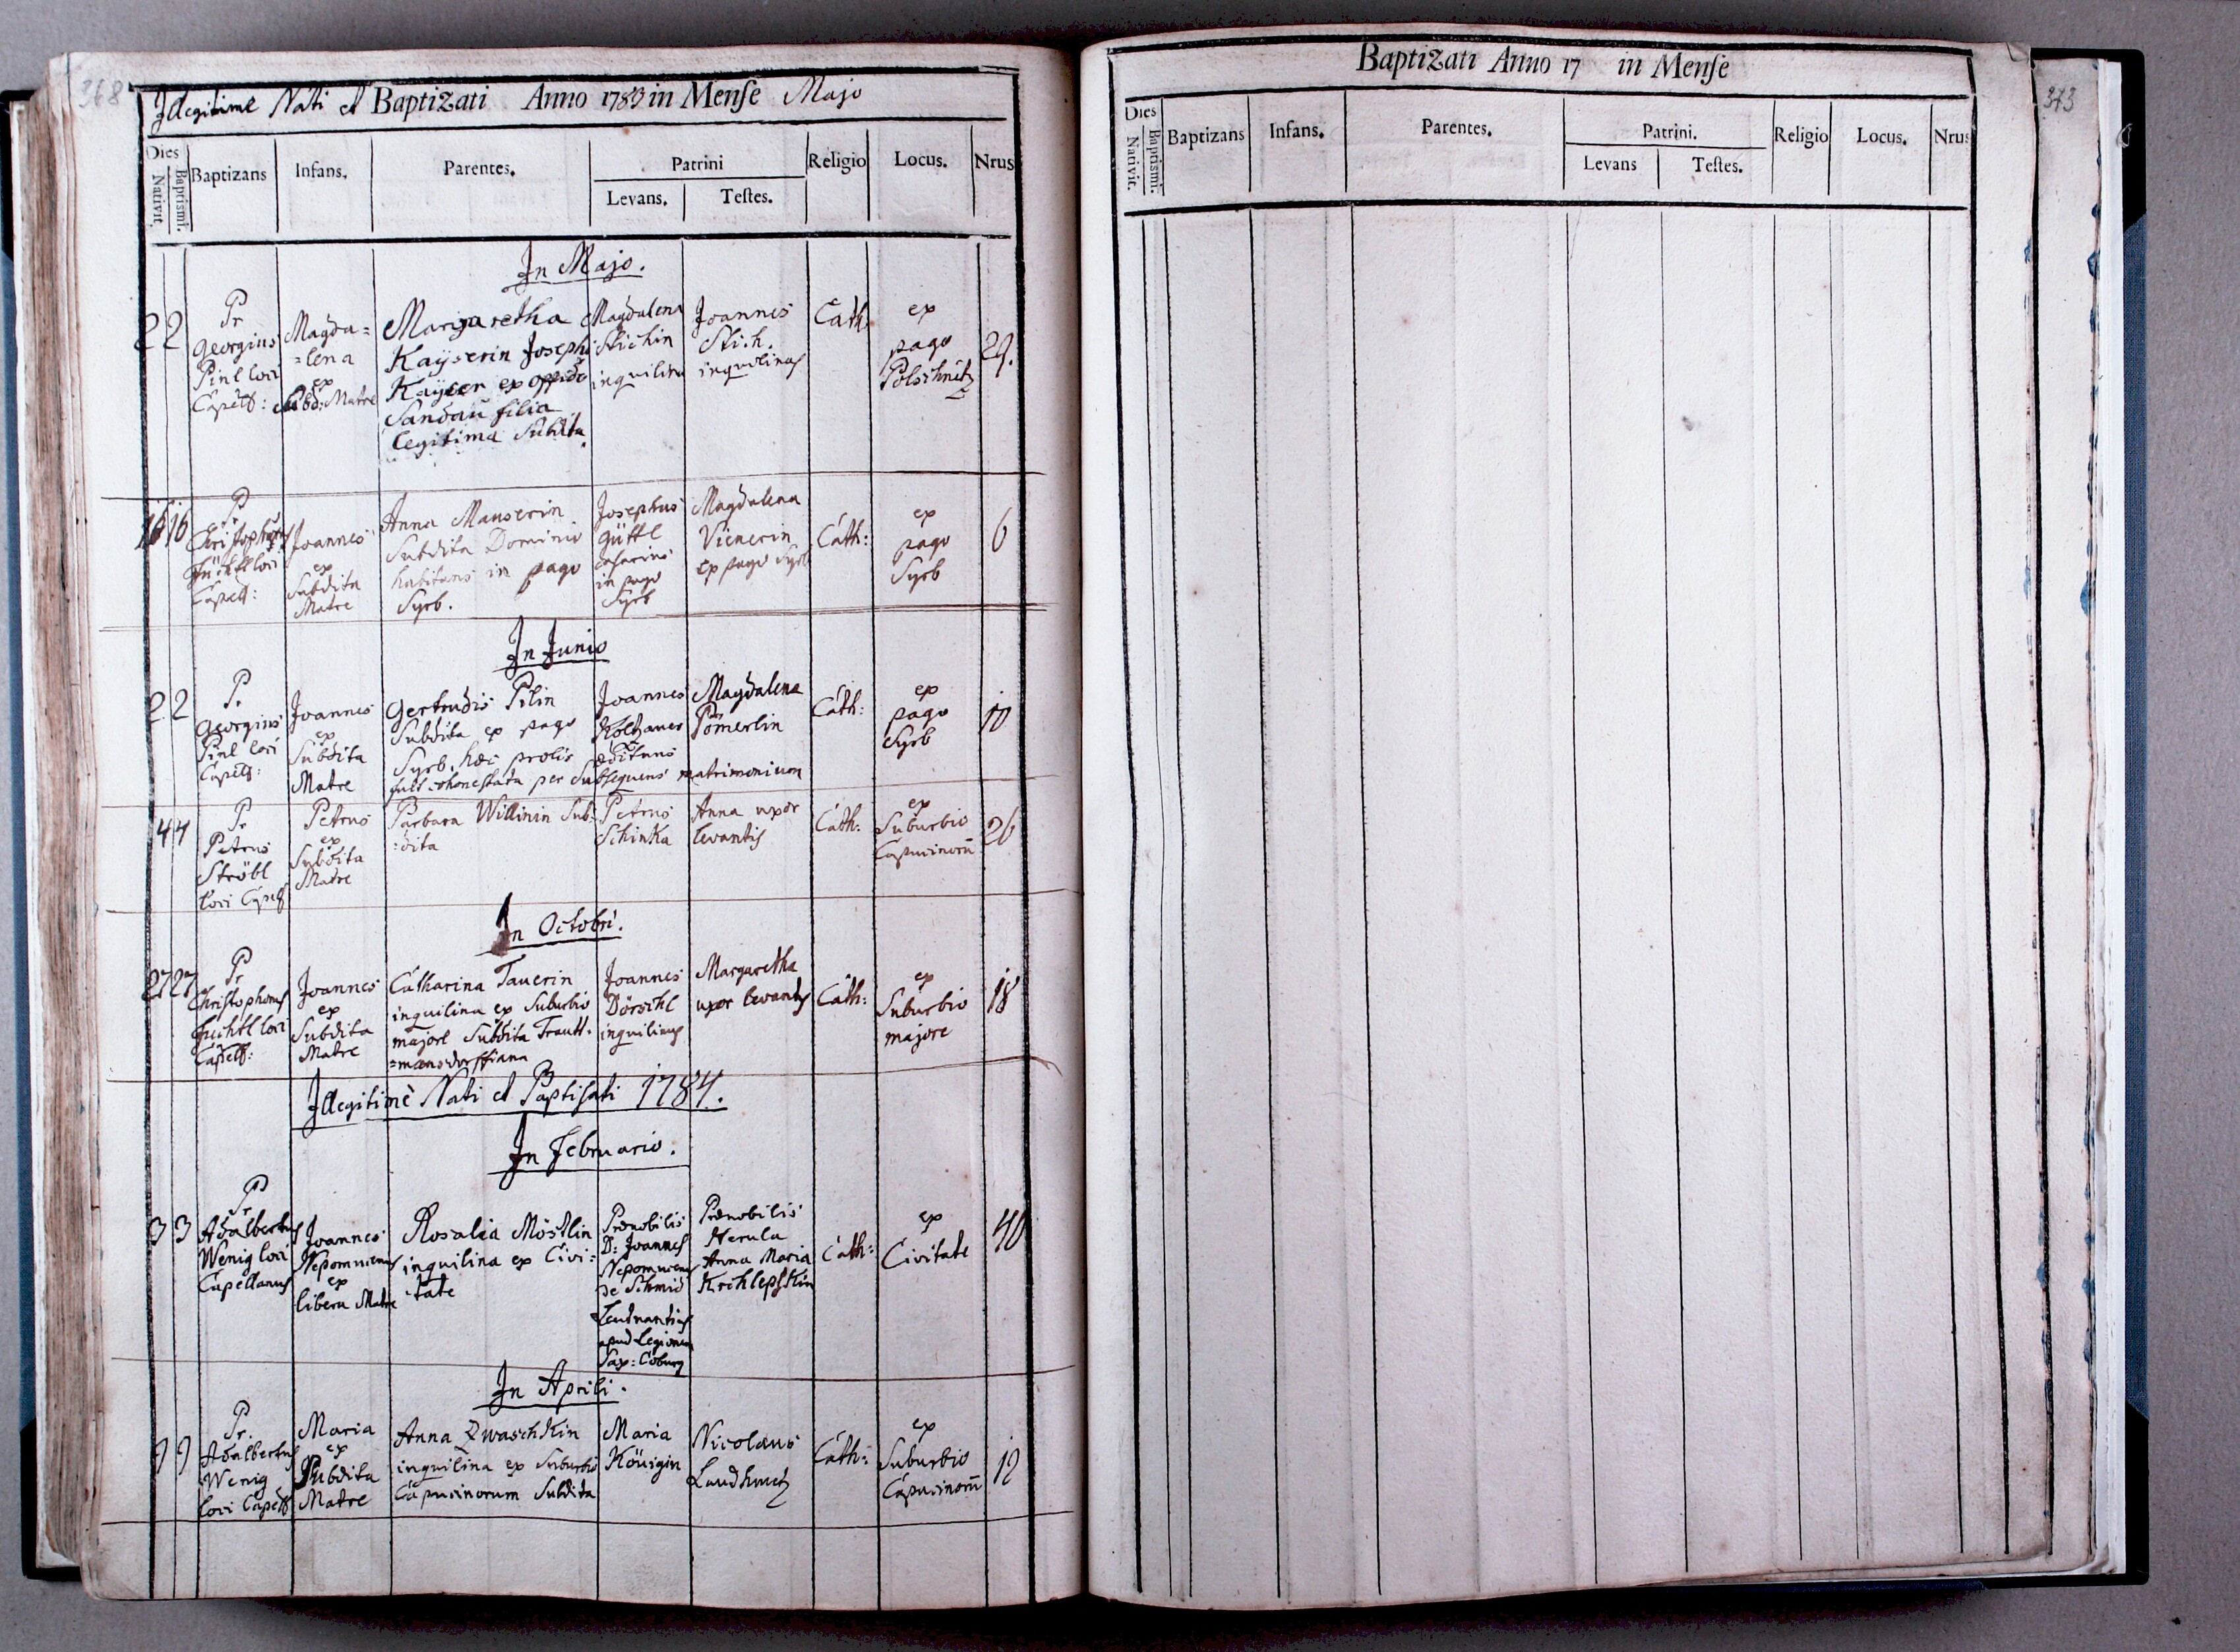 368
Illegitime Nati et Baptizati Anno 1783 in Mense Majo
Dies
Nativit.
Baptismi.
Baptizans
Infans.
Parentes.
Patrini
Levans.
Testes.
Religio
Locus.
Nrus
In Majo.
2
2
Pr
Georgius
Pinl loci
Capell:
Magda=
=lena
ex
Subd: Matre
Margaretha
Kaÿserin Josephi
Kaÿser ex oppido
Sandau filia
legitima Subdita
Magdalena
Stichin
inquilina
Joannes
Stich.
inquilinus
Cath.
ex
pago
Polschnitz
29.
16
16
Pr
Christophorus
loci
Capell:
Joannes
ex
Subdita
Matre
Anna Manserin
Subdita Dominio
habitans in pago
Syrb.
Josephus
Güttl
casarius
in pago
Syrb
Magdalena
Vienerin
ex pago Syrb
Cath:
ex
pago
Syrb
6
In Junio
2
2
P.
Georgius
Pinl loci
Capell:
Joannes
ex
Subdita
Matre
Gertrudis Pilin
Subdita ex pago
Syrb. hæc prolis
fuit cohonestata per Subsequens matrimonium
Joannes
Æditunus
Magdalena
Pömerlin
Cath:
ex
pago
Syrb
10
4
4
Pr
Petrus
Ströbl
loci Capell
Petrus
ex
Subdita
Matre
Barbara Willinin Sub=
:dita
Petrus
Schinka
Anna uxor
levantis
Cath:
ex
Suburbio
Capucinorū
26
In Octobri.
27
27
Pr
Christophorus
Füchtl loci
Capell:
Joannes
ex
Subdita
Matre
Catharina Tauerin
inquilina ex Suburbio
majore Subdita Trautt=
=mansdorffiana
Joannes
Döröchl
inquilinus
Margaretha
uxor levantis
Cath:
ex
Suburbio
majore
18
Illegitimè Nati et Baptisati 1784.
In Februario.
3
3
Pr
Adalbertus
Wenig loci
Capellanus
Joannes
Nepomucenus
ex
libera Matre
Rosalia Möstlin
inquilina ex Civi=
:tate
Prænobilis
D: Joannes
Nepomucenus
de Schmid
Leutnantius
apud Legionem
Sax: Coburg
Prænobilis
Herula
Anna Maria
Cath:
ex
Civitate
40
In Aprili.
9
9
Pr.
Adalbertus
Wenig
loci Capell
Maria
ex
Subdita
Matre
Anna Zwaschkin
inquilina ex Suburbio
Capucinorum Subdita
Maria
Königin
Nicolaus
Cath:
ex
Suburbio
Capucinorū
12
Baptizati Anno 17 in Mense
Dies
Nativit.
Baptismi.
Baptizans
Infans.
Parentes.
Patrini.
Levans
Testes.
Religio
Locus.
Nrus
373